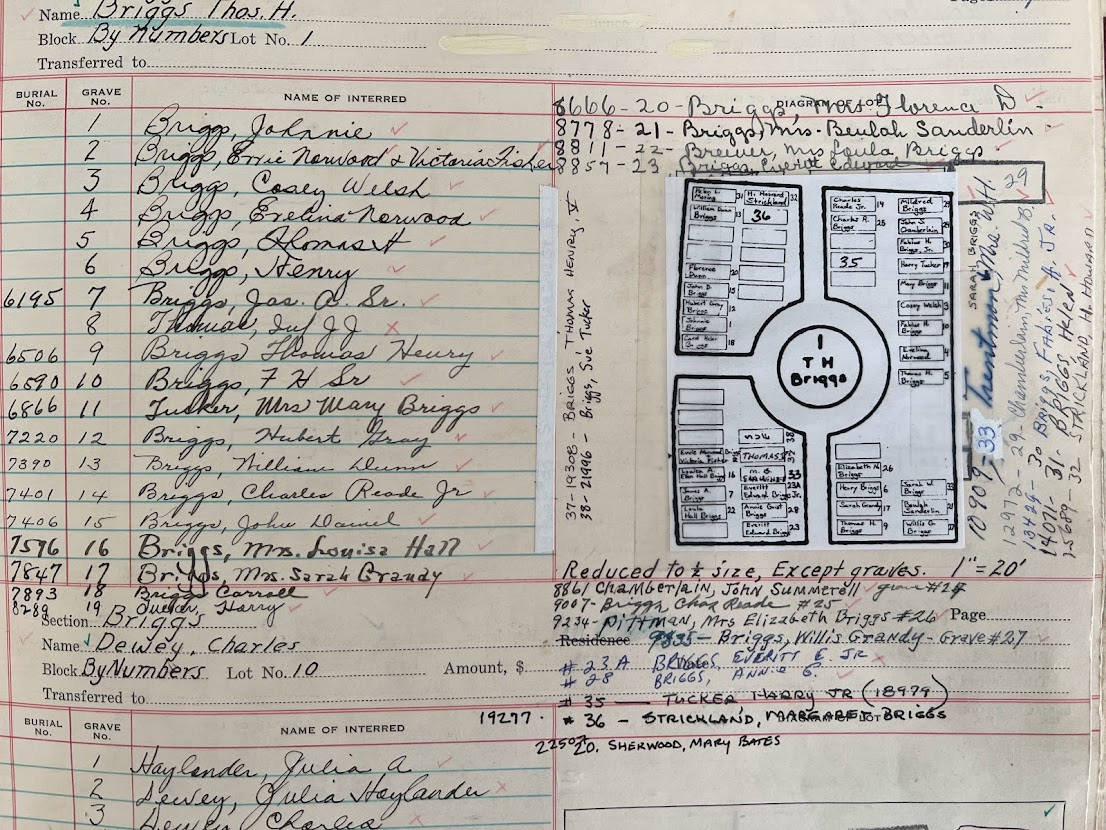 Name Briggs Thos. H.
Block By Numbers Lot No. 1
Transferred to
BURIAL No. GRAVE No. NAME OF INTERRED
1 Briggs, Johnnie
2 Briggs, Ernie Norwood & Victoria Fisher
3 Briggs, Casey Welsh
4 Briggs, Evelina Norwood
5 Briggs, Thomas H
6 Briggs, Henry
6195 7 Briggs, Jas. A. Sr.
8 Thomas, Inf J J
6506 9 Briggs Thomas Henry
6590 10 Briggs, F H Sr
6866 11 Tucker, Mrs Mary Briggs
7220 12 Briggs, Hubert Gray
7390 13 Briggs, William Dunn
7401 14 Briggs, Charles Reade Jr
7406 15 Briggs, John Daniel
7576 16 Briggs, Mrs. Louisa Hall
7847 17 Briggs, Mrs. Sarah Grandy
7893 18 Briggs Carroll
8289 19 Tucker, Harry
DIAGRAM OF LOT
8666-20-Briggs, Mrs. Florence D.
8778-21-Briggs, Mrs. Beulah Sanderlin
8811-22-Brewer, Mrs Loula Briggs
8857-23 Briggs, Everitt Edward
37-19308- BRIGGS THOMAS HENRY, V
38-21996- Briggs, Sue Tucker
Helen L. 31
H. Howard Strickland 32
William Dunn Briggs 13
36
Florence Dunn 20
John D Briggs 15
Hubert Gray Briggs 12
Johnnie Briggs 1
18
Charles Reade Jr. 14
Charles R. Briggs 25
35
Mildred Briggs 29
John S. Chamberlain 24
Fabius H. Briggs, Jr. 30
Harry Tucker 19
Mary Briggs 11
Casey Welsh 3
Fabius H. Briggs 10
Evelina Norwood 4
Thomas H. Briggs 5
1
T H
Briggs
Sue 38
THOMAS 37
Victoria Fisher
Louisa A. Hall Briggs 16
33
James A. Briggs 7
Everitt Edward Briggs Jr. 23A
Loula Hall Briggs 22
Annie Briggs 28
Everitt Edward Briggs 23
Elizabeth N. Briggs 26
Henry Briggs 6
Sarah W. Briggs 33
Sarah Grandy 17
Beulah Sanderlin 21
Thomas H. Briggs 9
Willis G. Briggs 27
29
SARAH BRIGGS
10909-33 Trentman, Mrs. W.H.
12972-29-Chamberlain, Mrs Mildred B.
13429-30 BRIGGS, FABIUS H. JR.
14091-31. BRIGGS HELEN
25689-32 STRICKLAND H. HOWARD
Reduced to ½ size, Except graves. 1"=20'
8861 CHAMBERLAIN, JOHN SUMMERELL grave #24
9067-Briggs, Chas Reade #25
9234-PITTMAN, Mrs Elizabeth Briggs #26 Page
Residence 9335-Briggs, Willis Grandy-Grave #27
# 23A BRIGGS, EVERITT E. JR
# 28 BRIGGS, ANNIE G.
# 35 — TUCKER, HARRY JR (18979)
19277. # 36 - STRICKLAND, MARGARET BRIGGS
22507 20. SHERWOOD, MARY BATES
Section Briggs
Name Dewey, Charles
Block By Numbers Lot No. 10 Amount, $
Transferred to
BURIAL No. GRAVE No. NAME OF INTERRED
1 Haylander, Julia A
2 Dewey, Julia Haylander
3 Dewey Charles